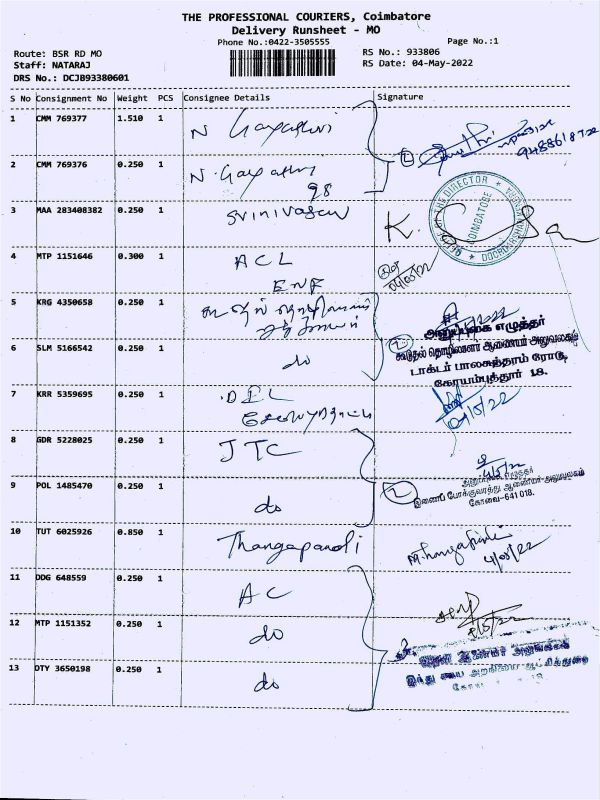 THE PROFESSIONAL COURIERS, Coimbatore
Delivery Runsheet - MO
Phone No.:0422-3505555
Page No.:1
Route: BSR RD MO
RS No.: 933806
Staff: NATARAJ
RS Date: 04-May-2022
DRS No.: DCJB93380601
S No Consignment No Weight PCS Consignee Details Signature
1 CMM 769377 1.510 1 N Gayathri
2 CMM 769376 0.250 1 N. Gayathri
98
3 MAA 283408382 0.250 1 Srinivasan K.
OFFICE OF THE DIRECTOR
COIMBATORE
DOORDARSHAN
4 MTP 1151646 0.300 1 ACL
ENF
04/05/22
5 KRG 4350658 0.250 1
அனுப்புகை எழுத்தர்
6 SLM 5166542 0.250 1 do
கூடுதல் தொழிலாளர் ஆணையர் அலுவலகம்
டாக்டர் பாலசுந்தரம் ரோடு,
கோயம்புத்தூர் 18.
7 KRR 5359695 0.250 1 DEL
04/5/22
8 GDR 5228025 0.250 1 JTC
4/5/22
9 POL 1485470 0.250 1 do 2
இணைப் போக்குவரத்து ஆணையர் அலுவலகம்
கோவை-641 018.
10 TUT 6025926 0.850 1 Thangapandi
4/05/22
11 DDG 648559 0.250 1 AC
12 MTP 1151352 0.250 1 do
4/5/22
உதவி ஆணையர் அலுவலகம்
13 DTY 3650198 0.250 1 do
இந்து சமய அறநிலைய ஆட்சித்துறை